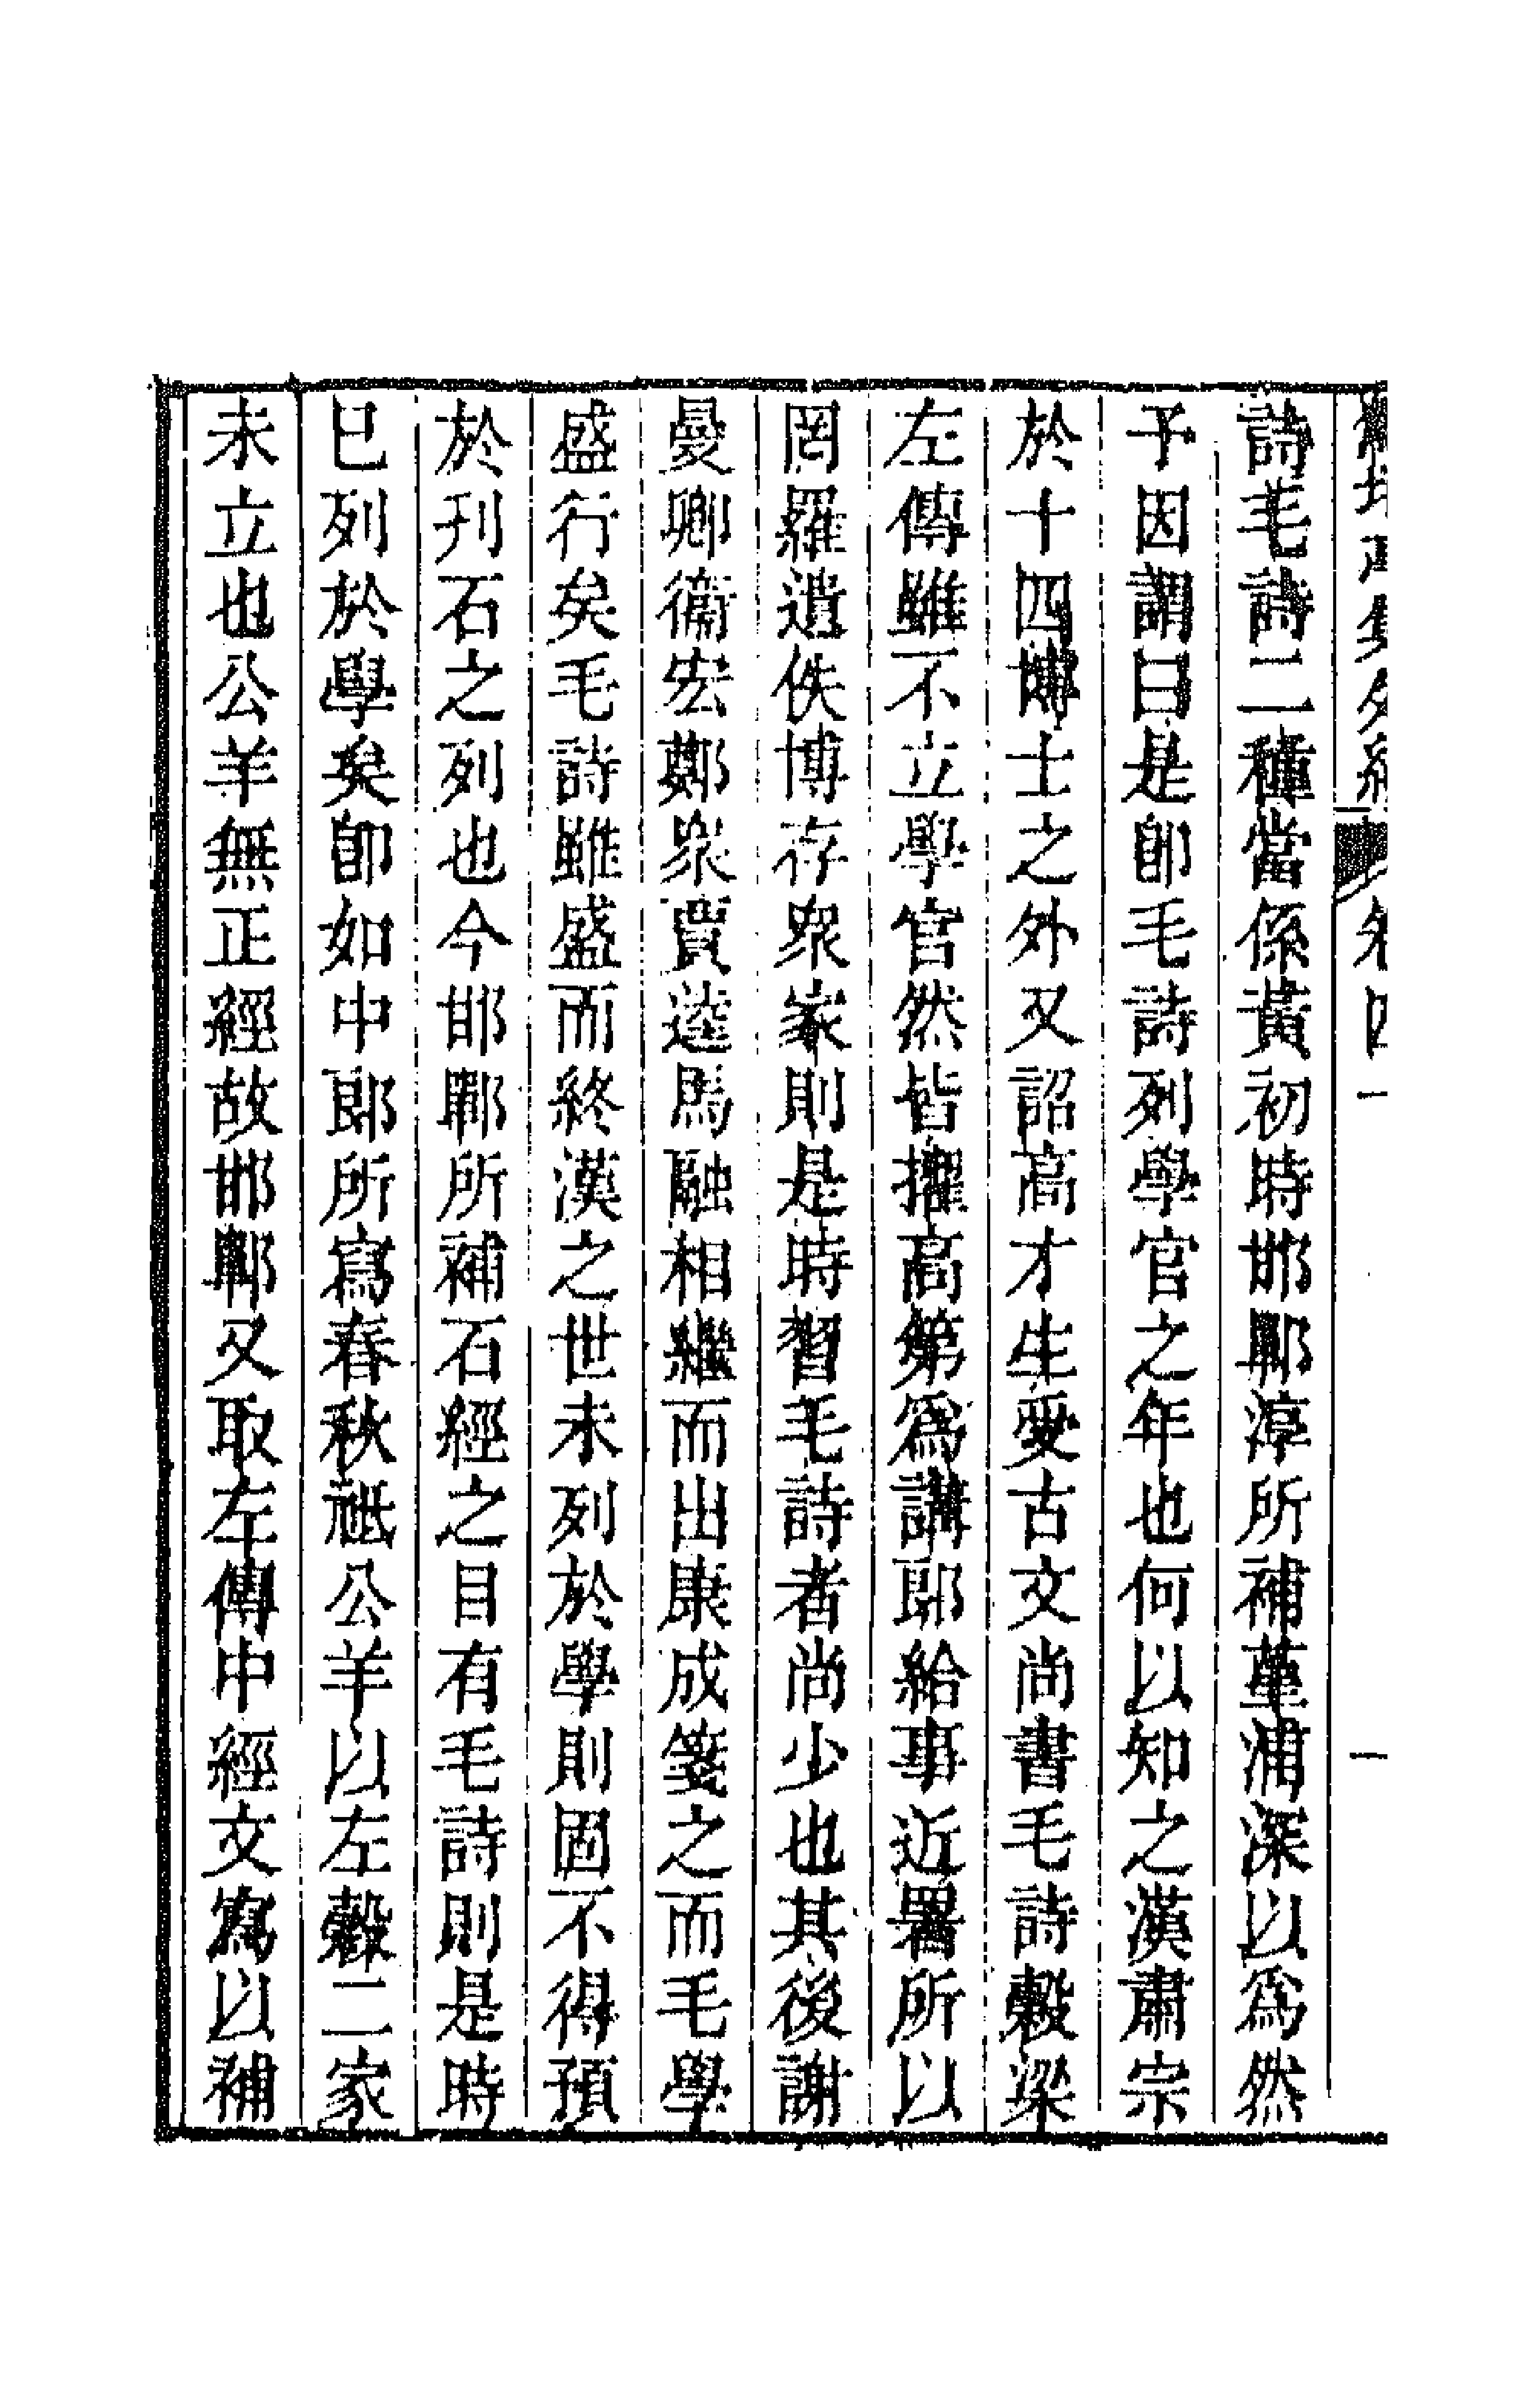 詩毛詩二種當係黃初時邯鄲淳所補菫浦深以爲然
予因謂曰是卽毛詩列學官之年也何以知之漢肅宗
於十四博士之外又詔高才生受古文尚書毛詩穀梁
左傳雖不立學官然皆擢高第爲講郞給事近署所以
罔羅遺佚博存衆家則是時習毛詩者尚少也其後謝
曼卿衞宏鄭衆賈逵馬融相繼而出康成箋之而毛學
盛行矣毛詩雖盛而終漢之世未列於學則固不得預
於刋石之列也今邯鄲所補石經之目有毛詩則是時
已列於學矣卽如中郞所寫春秋祗公羊以左穀二家
未立也公羊無正經故邯鄲又取左傳中經文寫以補